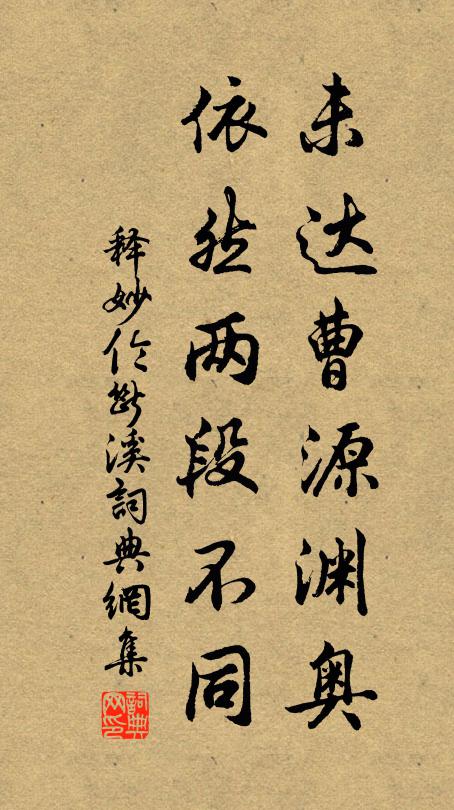 未达曹源渊奥
依然两段不同
释妙伦断溪詞典網集
詞典网印